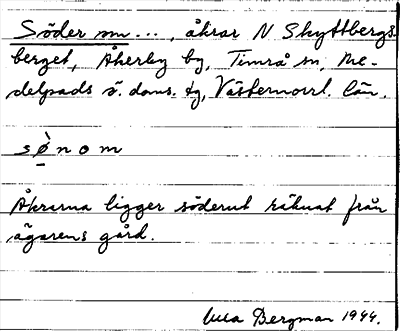 Söder om..., åkrar N Skyttbergs-
berget, Åkerby by, Timrå sn, Me-
delpads ö. doms. tg, Västernorrl. län.
sø̀nom
Åkrarna ligger söderut räknat från
ägarens gård.
Ulla Bergman 1944.